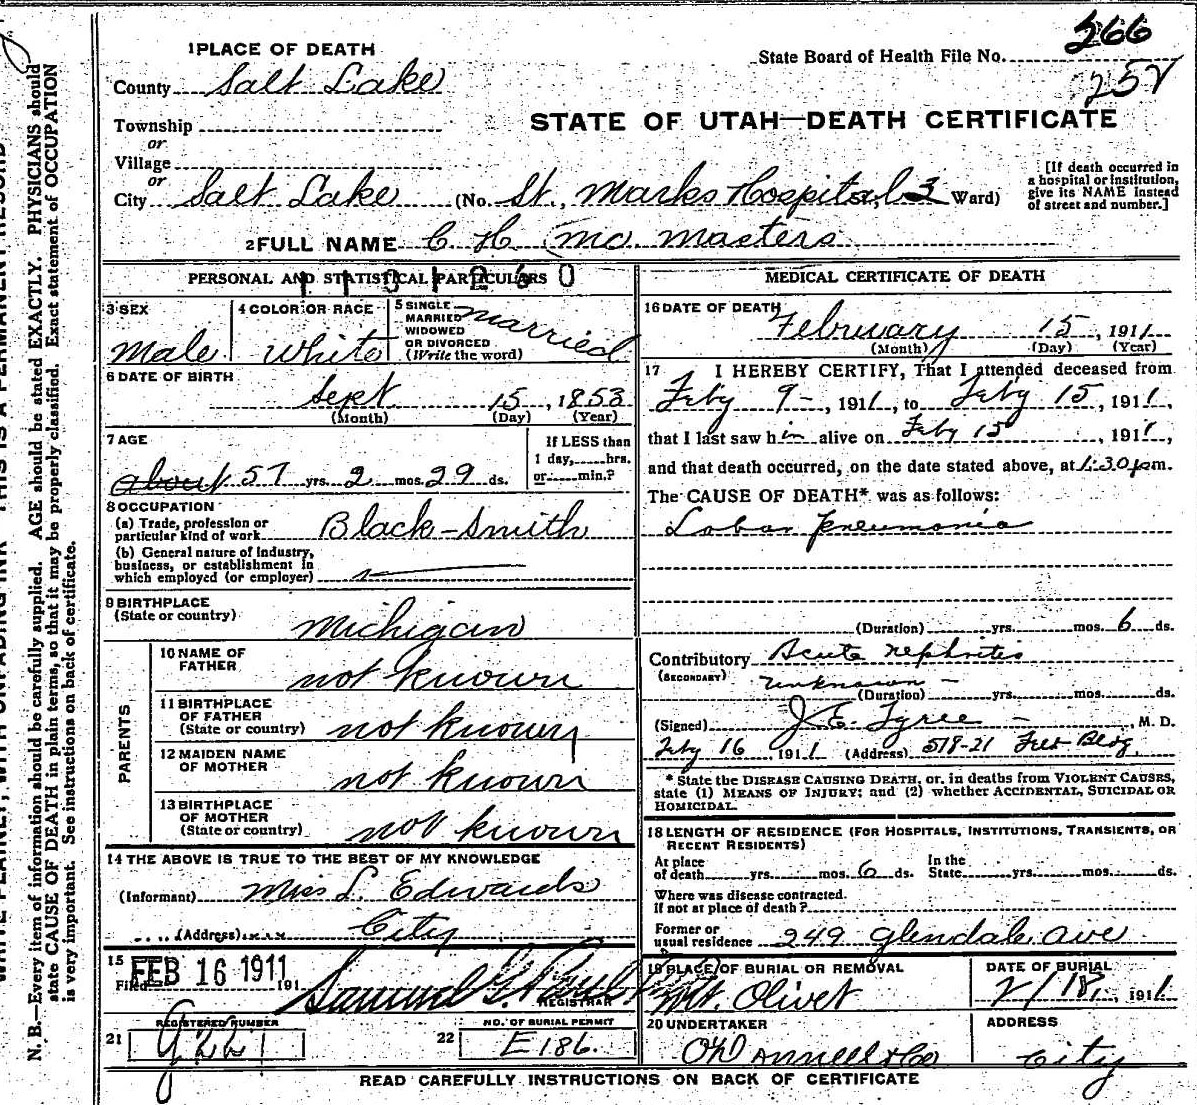 266
State Board of Health File No.
252
1 PLACE OF DEATH
County Salt Lake
STATE OF UTAH—DEATH CERTIFICATE
Township
or
Village
or
City Salt Lake (No. St. Marks Hospital St.; 3 Ward)
[If death occurred in
a hospital or institution,
give its NAME instead
of street and number.]
2 FULL NAME C H Mc. Masters
PERSONAL AND STATISTICAL PARTICULARS
3 SEX
Male
4 COLOR OR RACE
White
5 SINGLE
MARRIED
WIDOWED
OR DIVORCED
(Write the word)
Married
6 DATE OF BIRTH
Sept 15, 1853
(Month) (Day) (Year)
7 AGE
about 57 yrs. 2 mos. 29 ds.
If LESS than
1 day, hrs.
or min.?
8 OCCUPATION
(a) Trade, profession or
particular kind of work Black-Smith
(b) General nature of industry,
business, or establishment in
which employed (or employer)
9 BIRTHPLACE
(State or country)
Michigan
PARENTS
10 NAME OF
FATHER
not known
11 BIRTHPLACE
OF FATHER
(State or country)
not known
12 MAIDEN NAME
OF MOTHER
not known
13 BIRTHPLACE
OF MOTHER
(State or country)
not known
14 THE ABOVE IS TRUE TO THE BEST OF MY KNOWLEDGE
(Informant) Miss L. Edwards
(Address) City
15
Filed FEB 16 1911 191
Samuel G. Paul
REGISTRAR
21
REGISTERED NUMBER
G 221
22
NO. OF BURIAL PERMIT
E 186.
MEDICAL CERTIFICATE OF DEATH
16 DATE OF DEATH
February 15, 1911
(Month) (Day) (Year)
17 I HEREBY CERTIFY, That I attended deceased from
Feby 9 -, 1911, to Feby 15, 1911,
that I last saw him alive on Feby 15, 1911,
and that death occurred, on the date stated above, at 1:30 p m.
The CAUSE OF DEATH* was as follows:
Lobar Pneumonia
(Duration) yrs. mos. 6 ds.
Contributory Acute nephritis
(SECONDARY)
unknown -
(Duration) yrs. mos. ds.
(Signed) J. E. Tyree - , M. D.
Feby 16, 1911 (Address) 518-21 Bldg.
* State the DISEASE CAUSING DEATH, or, in deaths from VIOLENT CAUSES,
state (1) MEANS OF INJURY; and (2) whether ACCIDENTAL, SUICIDAL OR
HOMICIDAL.
18 LENGTH OF RESIDENCE (FOR HOSPITALS, INSTITUTIONS, TRANSIENTS, OR
RECENT RESIDENTS)
At place
of death yrs. mos. 6 ds.
In the
State yrs. mos. ds.
Where was disease contracted.
If not at place of death?
Former or
usual residence 249 Glendale Ave
19 PLACE OF BURIAL OR REMOVAL
Mt. Olivet
DATE OF BURIAL
2/18, 1911
20 UNDERTAKER
O'Donnell & Co
ADDRESS
City
READ CAREFULLY INSTRUCTIONS ON BACK OF CERTIFICATE
N. B.—Every item of information should be carefully supplied. AGE should be stated EXACTLY. PHYSICIANS should
state CAUSE OF DEATH in plain terms, so that it may be properly classified. Exact statement of OCCUPATION
is very important. See instructions on back of certificate.